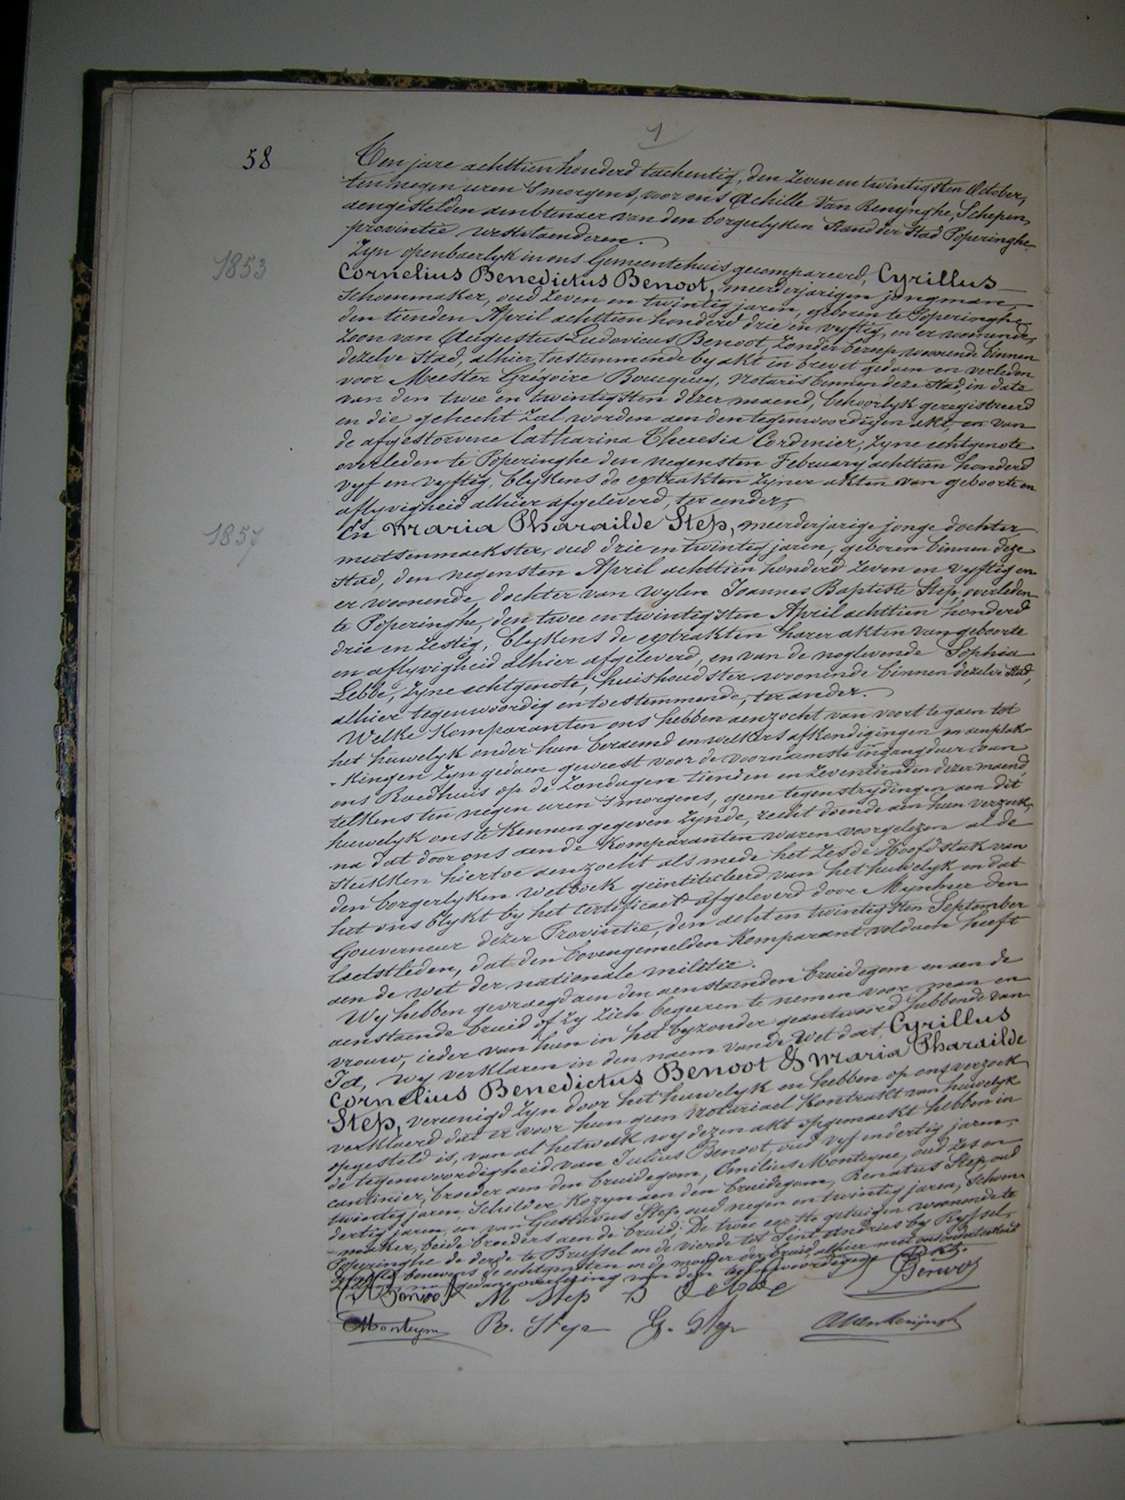 1
58
Ten jare achttien honderd tachentig, den zeven en twintigsten October,
ten negen uren 's morgens, voor ons Achille Van Renynghe, Schepen,
aengestelden ambtenaer van den borgerlyken Stand der Stad Poperinghe
provintie westvlaenderen.
Zyn openbaerlyk in ons Gemeentehuis gecompareerd, Cyrillus
1853
Cornelius Benedictus Benoot, meerderjarigen jongman,
Schoenmaker, oud zeven en twintig jaren, geboren te Poperinghe,
den tienden April achttien honderd drie en vyftig, en er woonende,
zoon van Augustus Ludovicus Benoot, zonder beroep, woonende binnen
dezelve Stad, alhier toestemmende by akt in brevet gedaen en verleden
voor Meester Grégoire Boucquey, Notaris binnen deze Stad, in date
van den twee en twintigsten dezer maend, behoorlyk geregistreerd
en die gehecht zal worden aen den tegenwoordigen akt, en van
de afgestorvene Catharina Theresia Cordenier, zyne echtgenote
overleden te Poperinghe den negensten February achttien honderd
vyf en vyftig, blykens de extrakten zyner akten van geboorte en
aflyvigheid alhier afgeleverd, ter eender,
En Maria Pharaïlde Step, meerderjarige jonge dochter
1857
mutsenmaekster, oud drie en twintig jaren, geboren binnen deze
Stad, den negensten April achttien honderd zeven en vyftig en
er woonende, dochter van wylen Joannes Baptiste Step, overleden
te Poperinghe, den twee en twintigsten April achttien honderd
drie en zestig, blykens de extrakten harer akten van geboorte
en aflyvigheid alhier afgeleverd, en van de noglevende Sophia
Lebbe, zyne echtgenote, huishoudster, woonende binnen dezelve Stad,
alhier tegenwoordig en toestemmende, ter ander.
Welke Komparanten ons hebben aenzocht van voort te gaen tot
het huwelyk onder hun beraemd en welkers afkondigingen en aenplak-
-kingen zyn gedaen geweest voor de voornaemste ingangdeur van
ons Raedhuis op de Zondagen tienden en zeventienden dezer maend,
telkens ten negen uren 's morgens, geene tegenstrydingen aen dit
huwelyk ons te kennen gegeven zynde, recht doende aen hun verzoek,
na dat door ons aen de Komparanten waren voorgelezen al de
stukken hiertoe aenzocht als mede het zesde Hoofdstuk van
den borgerlyken wetboek geïntituleerd van het huwelyk en dat
het ons blykt by het certificaet afgeleverd door Mynheer den
Gouverneur dezer Provintie, den acht en twintigsten September
laetstleden, dat den bovengemelden Komparant voldaen heeft
aen de wet der nationale militie.
Wy hebben gevraegd aen den aenstaenden bruidegom en aen de
aenstaende bruid of zy zich begeeren te nemen voor man en
vrouw, ieder van hun in het byzonder geantwoord hebbende van
Ja, wy verklaren in den naem van de Wet dat Cyrillus
Cornelius Benedictus Benoot & Maria Pharaïlde
Step, vereenigd zyn door het huwelyk en hebben op ons verzoek
verklaerd dat er voor hun geen notariael kontrakt van huwelyk
opgesteld is, van al hetwelk wy dezen akt opgemaekt hebben in
de tegenwoordigheid van Julius Benoot, oud vyf en dertig jaren,
cantinier, broeder aen den bruidegom, Emilius Monteyne, oud zes en
twintig jaren, Schilder, Kozyn aen den bruidegom, Renatus Step, oud
dertig jaren, en van Gustavus Step, oud negen en twintig jaren, Schoen-
-maker, beide broeders aen de bruid; De twee eerste getuigen woonende te
Poperinghe de derde te Brussel en de vierde tot Sint Andries by Ryssel,
benevens de echtgenoten en de moeder der bruid, alhier met ons onderteekend
gedane voorlezing van den tegenwoordigen akt.
Benoot M Step S Lebbe Benoot
Monteyne R. Step G. Step A Van Renynghe